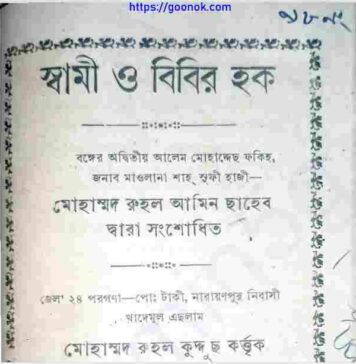 https://goonok.com
স্বামী ও বিবির হক
বঙ্গের অদ্বিতীয় আলেম মোহাদ্দেছ ফকিহ,
জনাব মাওলানা শাহ্ সুফী হাজী—
মোহাম্মদ রুহল আমিন ছাহেব
দ্বারা সংশোধিত
জেলা ২৪ পরগণা—পোঃ টাকী, নারায়ণপুর নিবাসী
খাদেমুল এছলাম
মোহাম্মদ রুহল কুদ্দুছ কর্ত্তৃক